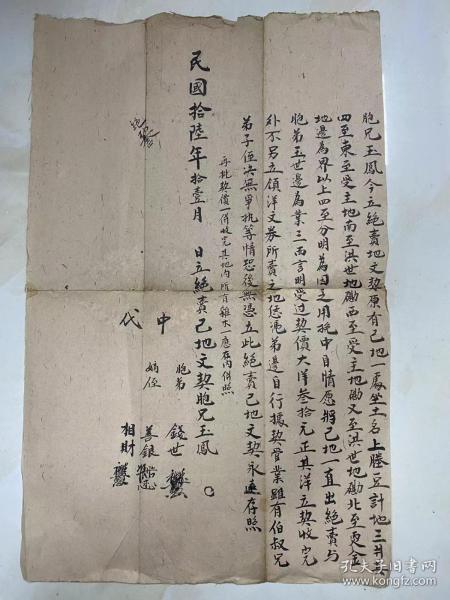 胞兄玉鳳今立絕賣地文契原有己地一處坐土名上塍豆計地三
四至東至受主地南至洪世地磡西至受主地磡又至洪世地磡北至
地邊為界以上四至分明為因乏用挽中自情愿將己地一直出絕賣与
胞弟玉世邊為業三面言明受過契價大洋叁拾元正其洋立契收完
外不另立領洋文券所賣之地恁凴弟邊自行據契管業雖有伯叔兄
弟子侄決無爭执等情恐後無憑立此絕賣己地文契永遠存照
再批契價一併收完其地內所有雜木一應在內併照
民國拾陸年拾壹月 日立絕賣己地文契胞兄玉鳳
中 胞弟 錢世
嫡侄 善銀
代 相財
孔夫子旧书网
kongfz.com